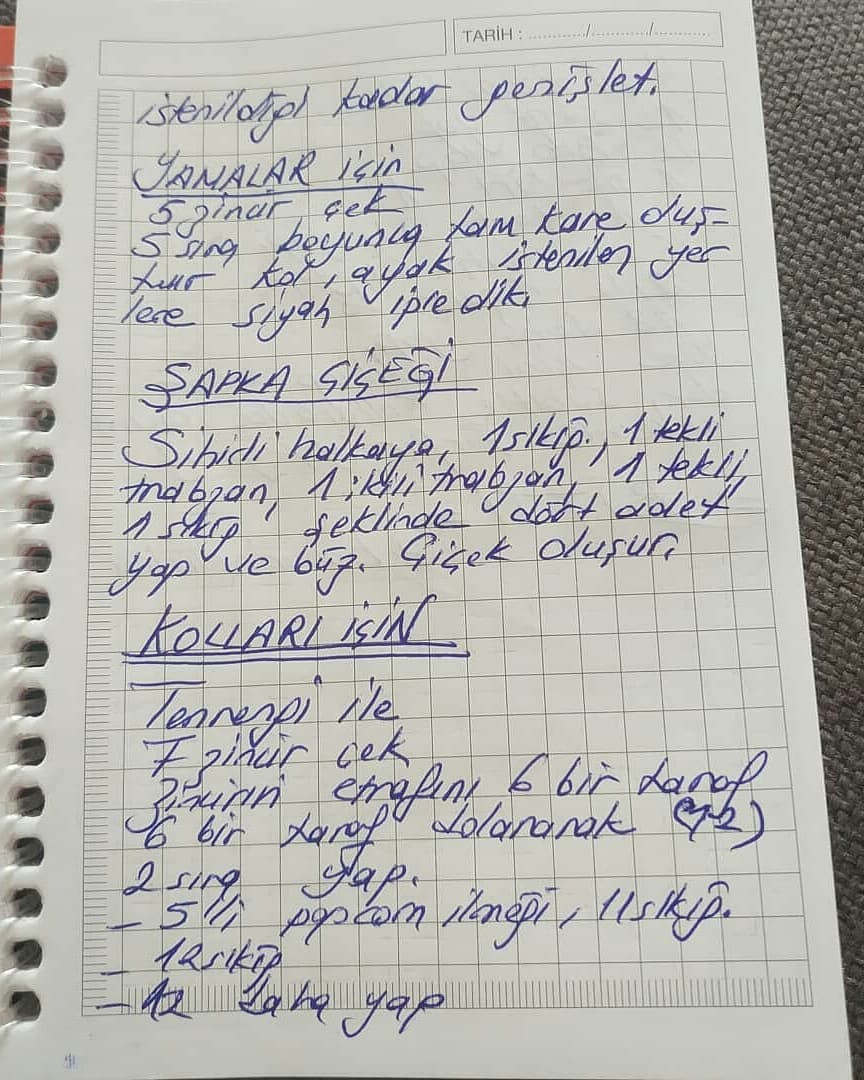 TARİH : ........../........../..........
istenildiği kadar genişlet.
YAMALAR için
5 zincir çek
5 sıra boyunca tam kare oluş-
tur kol, ayak istenilen yer
lere siyah iple dik.
ŞAPKA ÇİÇEĞİ
Sihirli halkaya, 1 sıkiğ., 1 tekli
trabzan, 1 ikili trabzan, 1 tekli,
1 sıkiğ şeklinde dört adet
yap ve büz. Çiçek oluşur.
KOLLARI İÇİN
Tenrengi ile
7 zincir çek
Zincirin etrafını 6 bir taraf
6 bir taraf dolanarak (12)
2 sıra yap.
- 5'li popcorn ilmeği, 11 sıkiğ.
- 12 sıkiğ
- daha yap